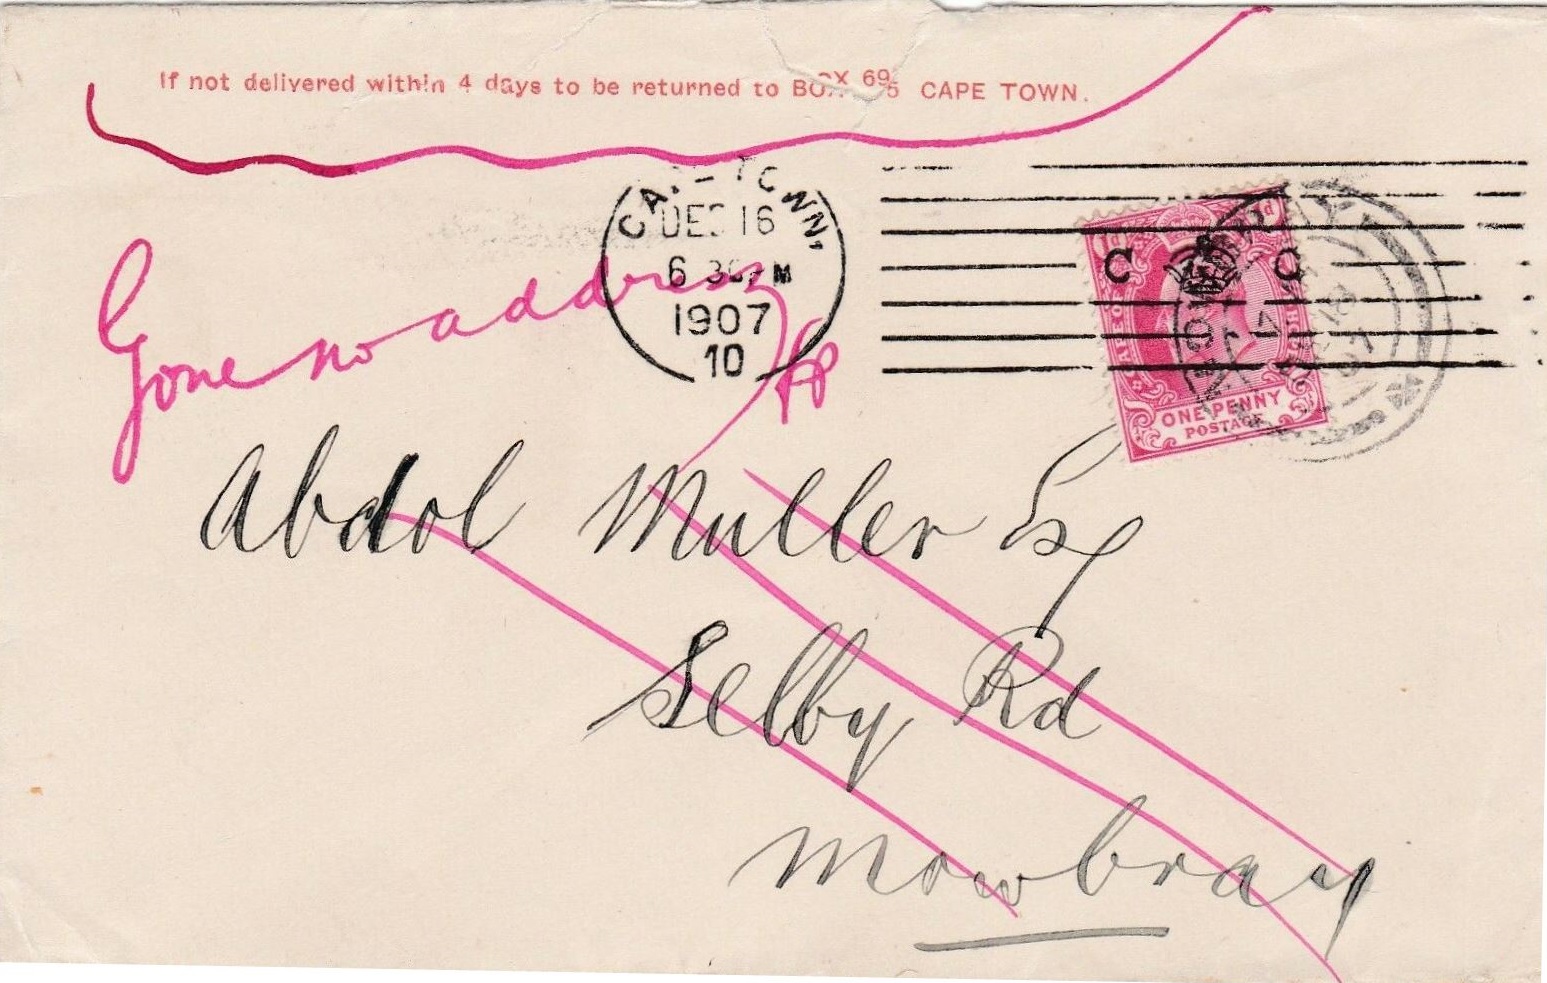 If not delivered within 4 days to be returned to BOX 695 CAPE TOWN.
CAPE TOWN,
DEC 16
6 30 PM
1907
10
1d 1d
C C
ONE PENNY
POSTAGE
MOWBRAY
Gone no address
Abdol Muller Esq
Selby Rd
Mowbray